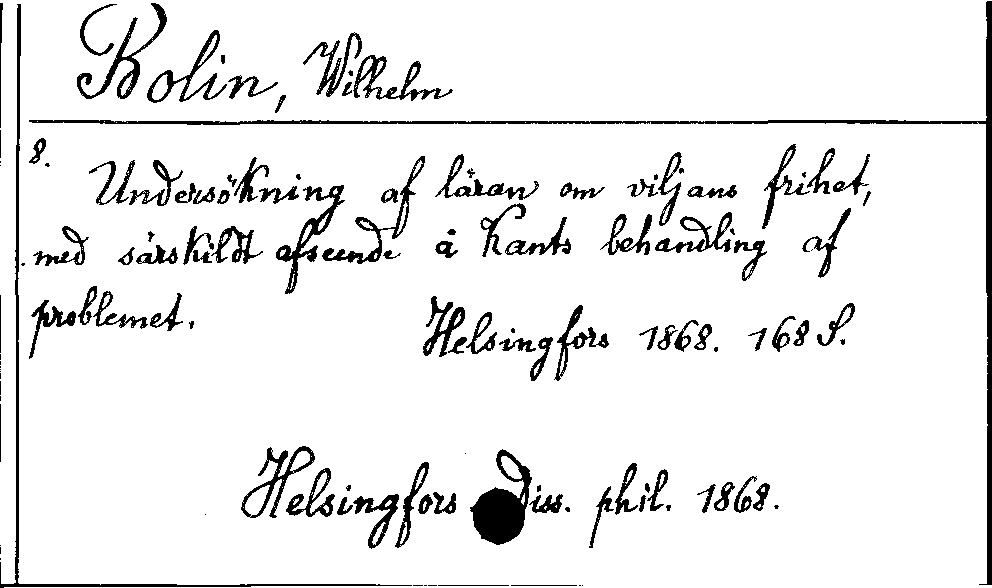 Bolin, Wilhelm
8.
Undersökning af läran om viljans frihet,
med särskildt afseende å Kants behandling af
problemet.
Helsingfors 1868. 168 S.
Helsingfors Diss. phil. 1868.